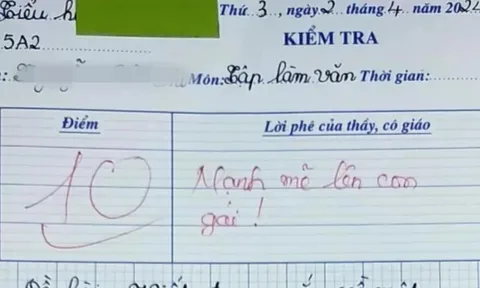 Tiểu h
Thứ 3, ngày 2 tháng 4 năm 202
5A2
KIỂM TRA
Môn: Tập làm văn Thời gian:
Điểm
Lời phê của thầy, cô giáo
10
Mạnh mẽ lên con
gái!